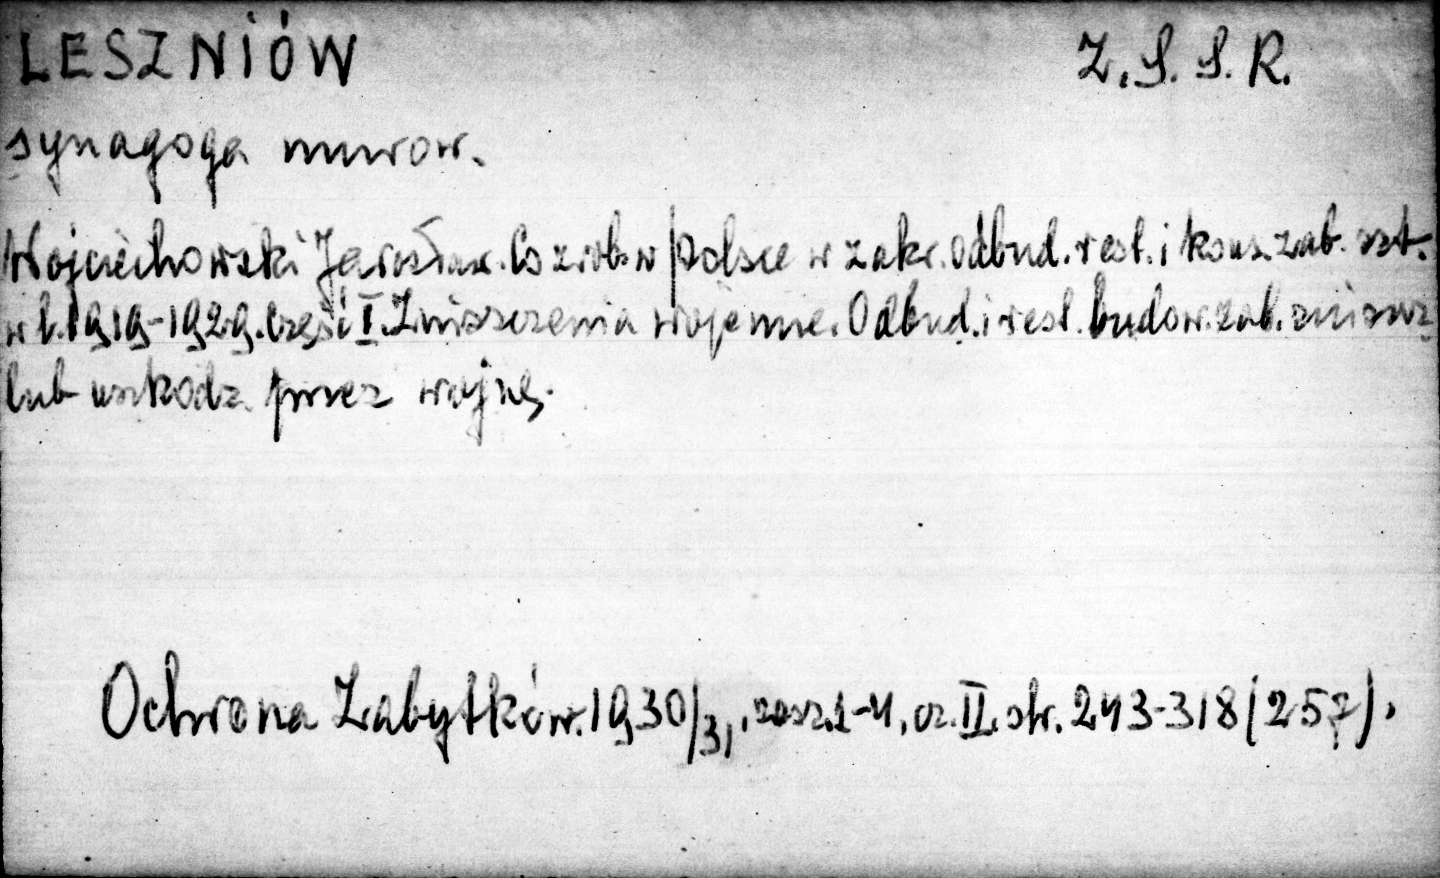 LESZNIÓW Z.S.S.R.
synagoga murow.
Wojciechowski Jarosław. Co zrob. w Polsce w zakr. odbud. rest. i kons. zab. szt.
w l. 1919-1929. Część I. Zniszczenia wojenne. Odbud. i rest. budow. zab. zniszcz.
lub uszkodz. przez wojnę.
Ochrona Zabytków. 1930/31, zesz. 1-4, cz. II. str. 243-318 (257).